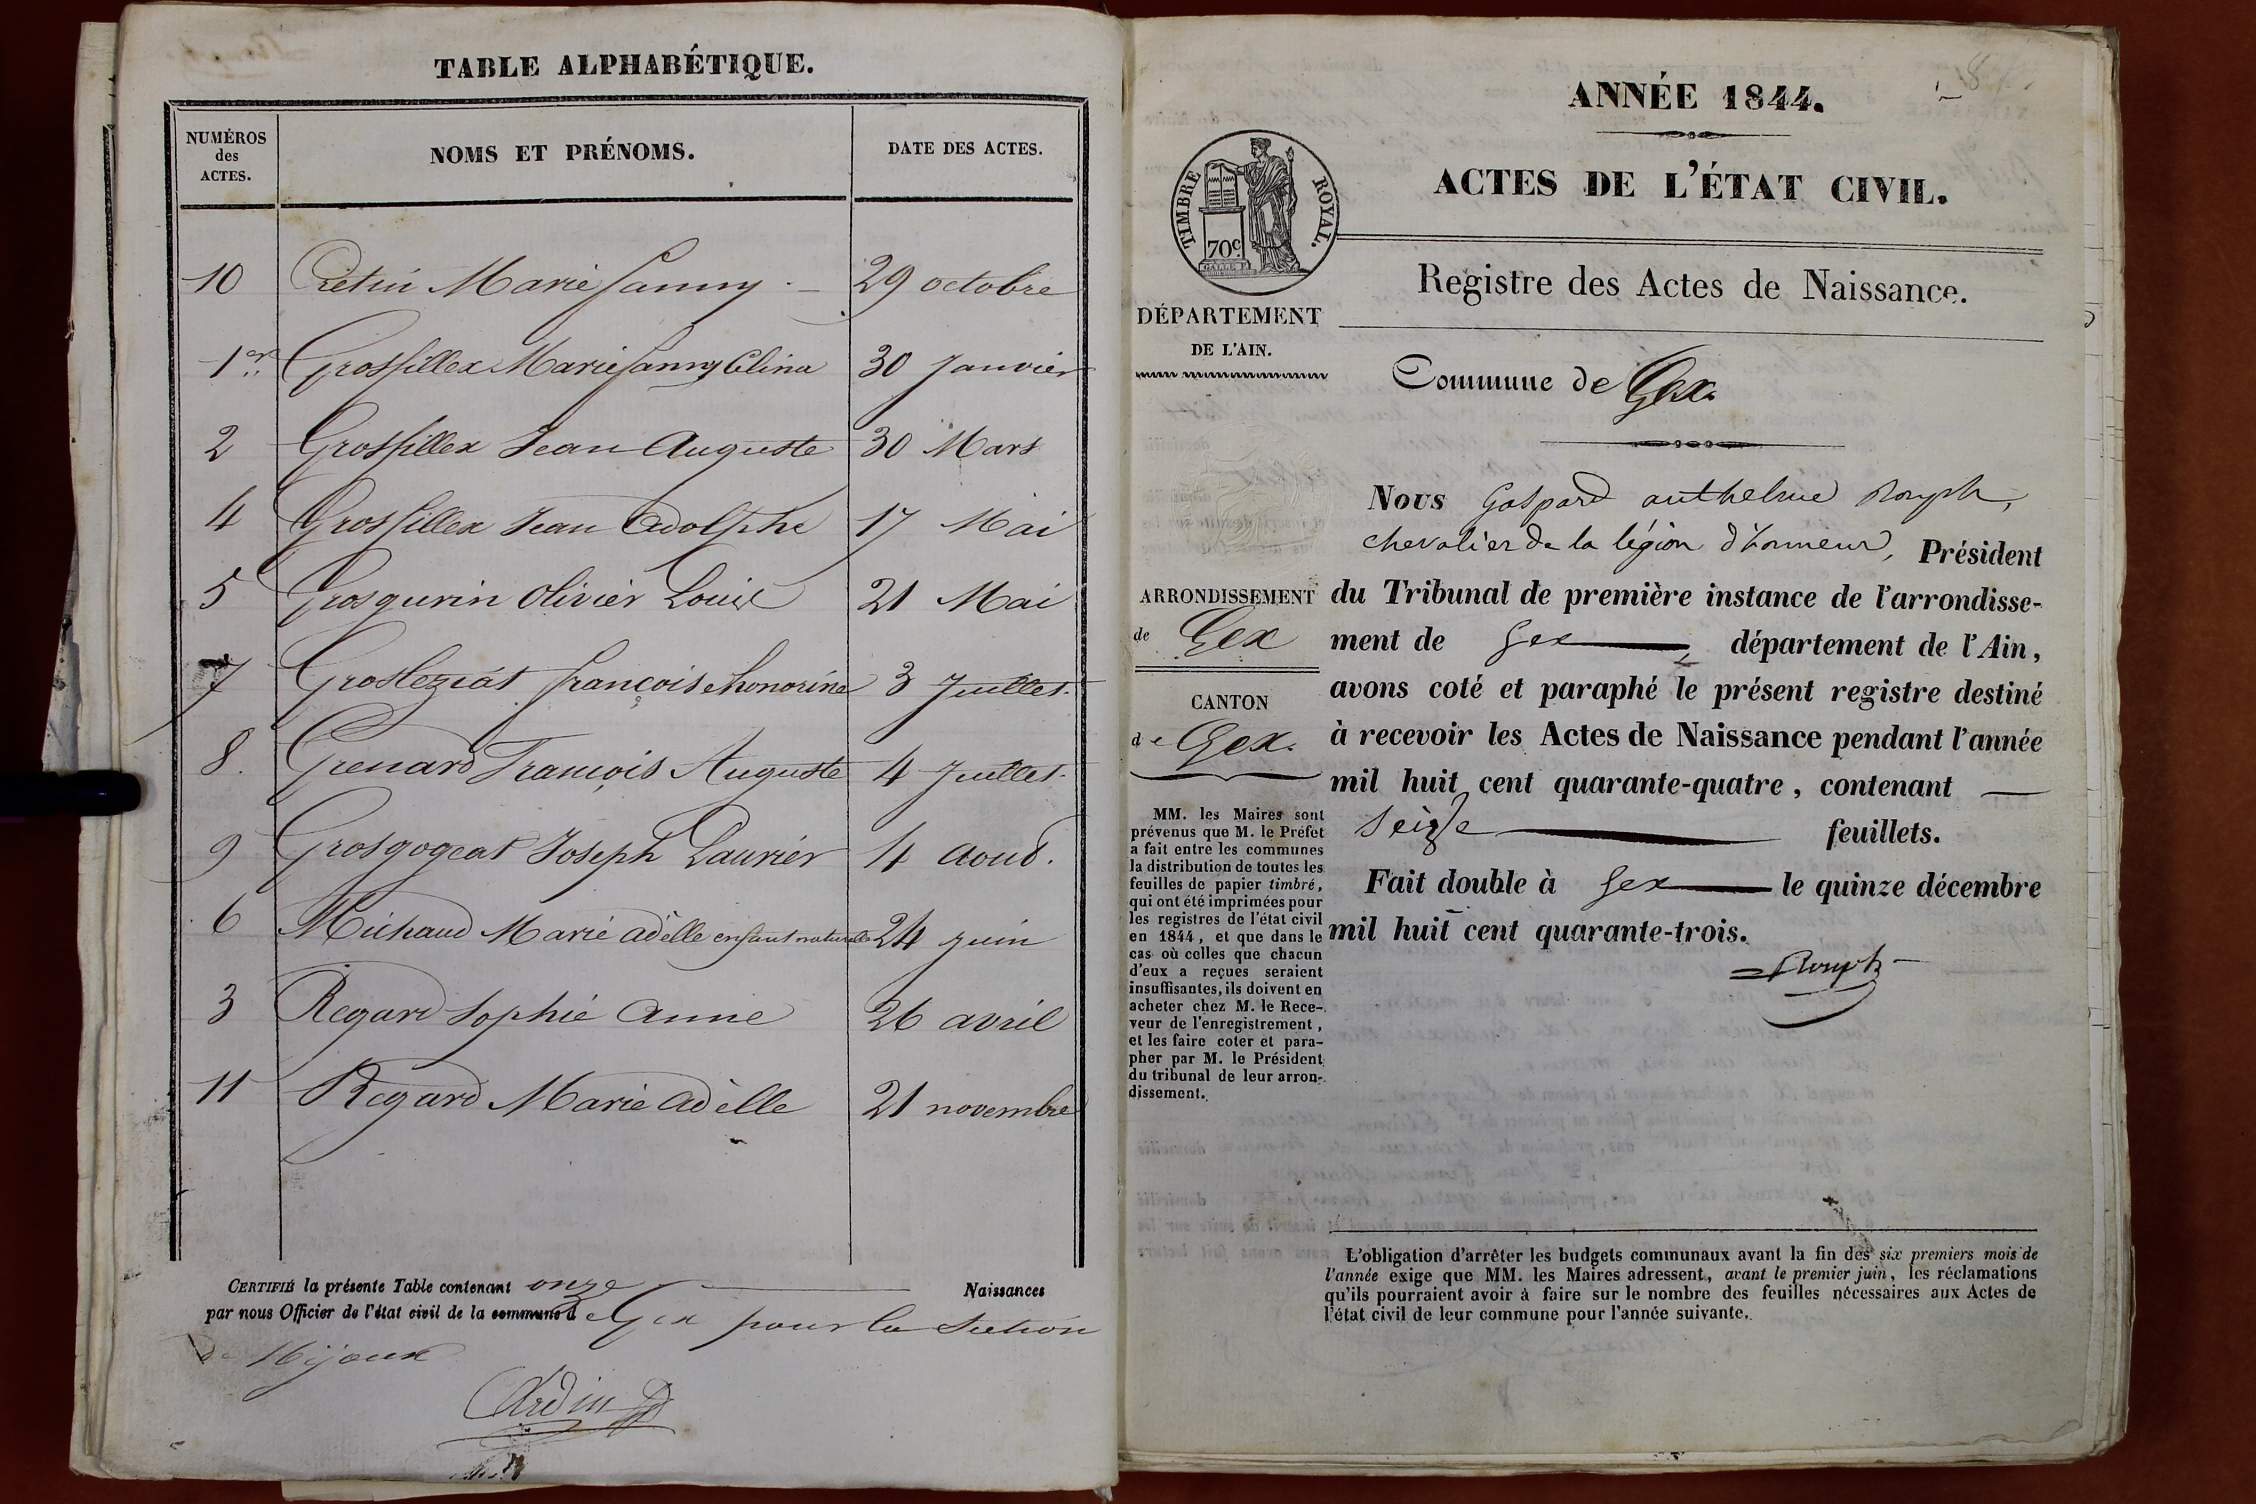 TABLE ALPHABÉTIQUE.
NUMÉROS des ACTES.
NOMS ET PRÉNOMS.
DATE DES ACTES.
10 Marie fanny 29 octobre
1er Grosfillex Marie fanny Célina 30 Janvier
2 Grosfillex Jean Auguste 30 Mars
4 Grosfillex Jean Adolphe 17 Mai
5 Grosgurin Olivier Louis 21 Mai
7 françoise honorine 3 Juillet
8. Grenard François Auguste 4 Juillet
9 Grosgogeat Joseph Laurier 4 aout.
6 Michaud Marie adèlle enfant naturelle 24 Juin
3 Regard Sophie Anne 26 avril
11 Regard Marie adèlle 21 novembre
CERTIFIÉ la présente Table contenant onze Naissances
par nous Officier de l'état civil de la commune de Gex pour la Section
de Mijoux
ANNÉE 1844.
ACTES DE L'ÉTAT CIVIL.
TIMBRE ROYAL.
70c.
Registre des Actes de Naissance.
DÉPARTEMENT
DE L'AIN.
Commune de Gex.
Nous Gaspard anthelme Rouph,
chevalier de la légion d'honneur, Président
ARRONDISSEMENT
de Gex
CANTON
de Gex.
du Tribunal de première instance de l'arrondisse-
ment de Gex, département de l'Ain,
avons coté et paraphé le présent registre destiné
à recevoir les Actes de Naissance pendant l'année
mil huit cent quarante-quatre, contenant —
seize feuillets.
Fait double à Gex le quinze décembre
mil huit cent quarante-trois.
Rouph
MM. les Maires sont
prévenus que M. le Préfet
a fait entre les communes
la distribution de toutes les
feuilles de papier timbré,
qui ont été imprimées pour
les registres de l'état civil
en 1844, et que dans le
cas où celles que chacun
d'eux a reçues seraient
insuffisantes, ils doivent en
acheter chez M. le Rece-
veur de l'enregistrement,
et les faire coter et para-
pher par M. le Président
du tribunal de leur arron-
dissement.
L'obligation d'arrêter les budgets communaux avant la fin des six premiers mois de
l'année exige que MM. les Maires adressent, avant le premier juin, les réclamations
qu'ils pourraient avoir à faire sur le nombre des feuilles nécessaires aux Actes de
l'état civil de leur commune pour l'année suivante.